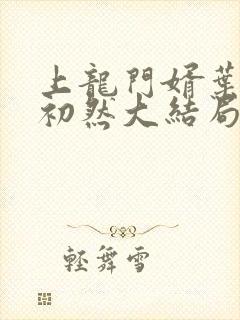 上龍門婿葉
初然大結局
輕舞雪